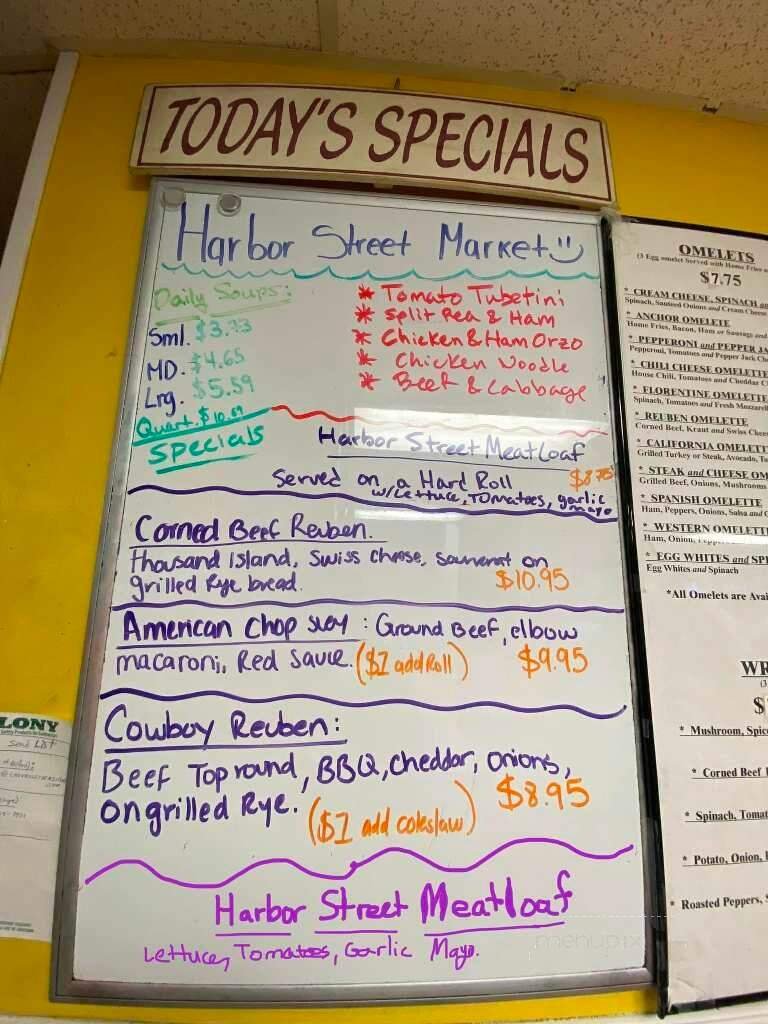 TODAY'S SPECIALS
Harbor Street Market
Daily Soups:
Sml. $3.33
MD. $4.65
Lrg. $5.59
Quart. $10.59
* Tomato Tubetini
* Split Pea & Ham
* Chicken & Ham Orzo
* Chicken Noodle
* Beef & Cabbage
Specials
Harbor Street Meatloaf
Served on a Hard Roll $8.75
w/Lettuce, Tomatoes, garlic
mayo
Corned Beef Reuben.
thousand Island, Swiss cheese, on
grilled Rye bread. $10.95
American Chop suey : Ground Beef, elbow
macaroni, Red Sauce. ($1 add Roll) $9.95
Cowboy Reuben:
Beef Top round, BBQ, cheddar, onions,
on grilled Rye. ($1 add coleslaw) $8.95
Harbor Street Meatloaf
Lettuce, Tomatoes, Garlic Mayo.
OMELETS
(3 Egg omelet Served with Home Fries
$7.75
* CREAM CHEESE, SPINACH
Spinach, Sauteed Onions and Cream Cheese
* ANCHOR OMELETE
Home Fries, Bacon, Ham or Sausage and
* PEPPERONI and PEPPER JA
Pepperoni, Tomatoes and Pepper Jack Che
* CHILI CHEESE OMELETTE
House Chili, Tomatoes and Cheddar C
* FLORENTINE OMELETTE
Spinach, Tomatoes and Fresh Mozzarell
* REUBEN OMELETTE
Corned Beef, Kraut and Swiss Chees
* CALIFORNIA OMELETT
Grilled Turkey or Steak, Avocado, To
* STEAK and CHEESE OM
Grilled Beef, Onions, Mushrooms
* SPANISH OMELETTE
Ham, Peppers, Onions, Salsa and C
* WESTERN OMELETTE
Ham, Onion,
* EGG WHITES and SPI
Egg Whites and Spinach
*All Omelets are Avai
WR
(3
$
* Mushroom, Spic
* Corned Beef
* Spinach, Tomat
* Potato, Onion,
* Roasted Peppers, S
LONY
menupix